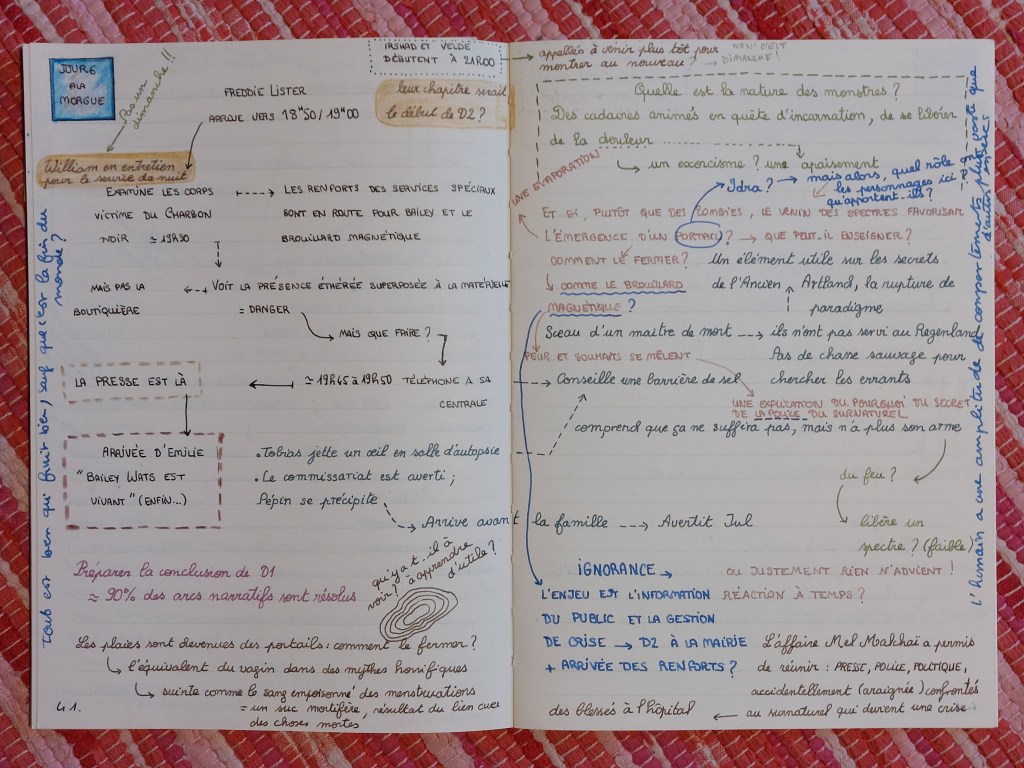 JOUR 6
A LA
MORGUE
Pas un
dimanche !!
FREDDIE LISTER
ARRIVE VERS 18H50 / 19H00
IRSHAD ET VELDE
DÉBUTENT À 21H00
leur chapitre serait
le début de D2 ?
William en entretien
pour le service de nuit
EXAMINE LES CORPS
VICTIME DU CHARBON
NOIR ≃ 19H30
LES RENFORTS DES SERVICES SPÉCIAUX
SONT EN ROUTE POUR BAILEY ET LE
BROUILLARD MAGNÉTIQUE
MAIS PAS LA
BOUTIQUIÈRE
VOIT LA PRÉSENCE ÉTHÉRÉE SUPERPOSÉE À LA MATÉRIELLE
= DANGER
MAIS QUE FAIRE ?
LA PRESSE EST LÀ
≃ 19H45 à 19H50 TÉLÉPHONE A SA
CENTRALE
ARRIVÉE D'EMILIE
"BAILEY WATS EST
VIVANT" (ENFIN...)
. Tobias jette un œil en salle d'autopsie
. Le commissariat est averti ;
Pépin se précipite
Arrive avant la famille → Avertit Jul
Préparer la conclusion de D1
≃ 90% des arcs narratifs sont résolus
qu'y a t-il à
voir ? à apprendre
d'utile ?
Les plaies sont devenues des portails : comment le fermer ?
l'équivalent du vagin dans des mythes horrifiques
suinte comme le sang empoisonné des menstruations
= un suc mortifère, résultat du lien avec
des choses mortes
41.
Tout est bien qui finit bien, sauf que c'est la fin du
monde ?
appellés à venir plus tôt pour
montrer au nouveau ? →
NON ! C'EST
DIMANCHE !
Quelle est la nature des monstres ?
Des cadavres animés en quête d'incarnation, de se libérer
de la douleur
un exorcisme ? une apaisement
UNE EVAPORATION
Idra ? → mais alors, quel rôle
les personnages ici
qu'apportent-ils ?
ET SI, PLUTÔT QUE DES ZOMBIES, LE VENIN DES SPECTRES FAVORISAIT
L'ÉMERGENCE D'UN PORTAIL ? → QUE PEUT-IL ENSEIGNER ?
COMMENT LE FERMER ?
COMME LE BROUILLARD
MAGNÉTIQUE ?
Un élément utile sur les secrets
de l'Ancien Artland, la rupture de
paradigme
Sceau d'un maitre de mort → ils n'ont pas servi au Regenland
PEUR ET SOUHAITS SE MÊLENT
Pas de chasse sauvage pour
chercher les errants
Conseille une barrière de sel
UNE EXPLICATION DU POURQUOI DU SECRET
DE LA POLICE DU SURNATUREL
comprend que ça ne suffira pas, mais n'a plus son arme
du feu ?
libère un
spectre ? (faible)
IGNORANCE →
OU JUSTEMENT RIEN N'ADVIENT !
L'ENJEU EST L'INFORMATION
RÉACTION À TEMPS ?
DU PUBLIC ET LA GESTION
DE CRISE → D2 À LA MAIRIE
+ ARRIVÉE DES RENFORTS ?
L'affaire Mel Malkhaï a permis
de réunir : PRESSE, POLICE, POLITIQUE,
accidentellement (araignée) confrontés
au surnaturel qui devient une crise
des blessés à l'hôpital
L'humain a une amplitude de comportements plus vaste que
d'autres espèces